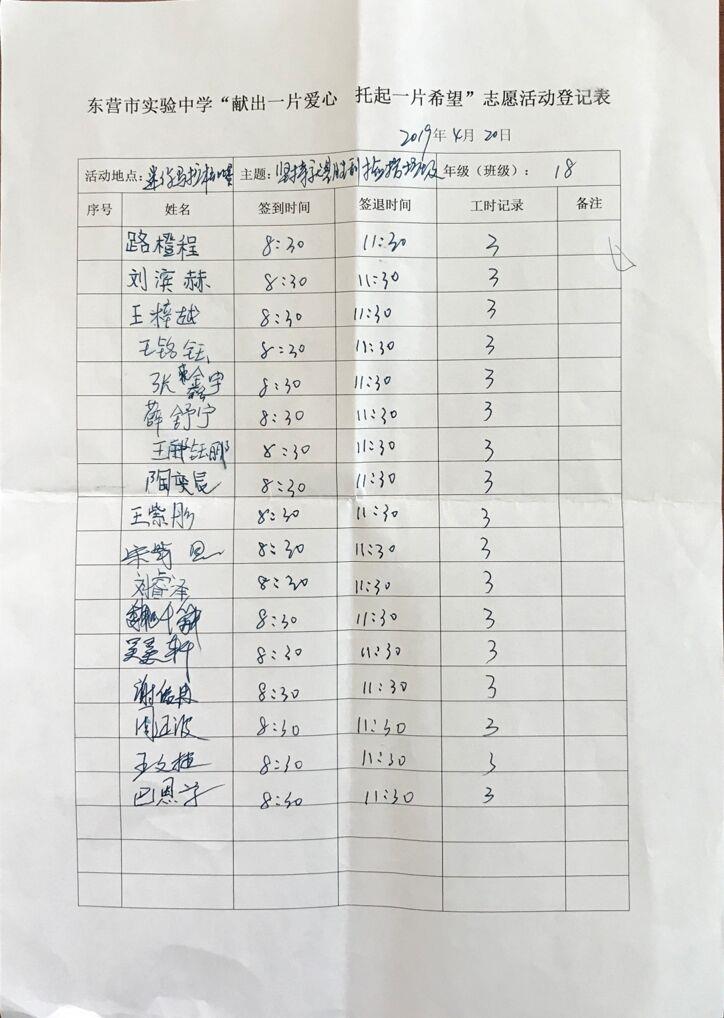 东营市实验中学“献出一片爱心 托起一片希望”志愿活动登记表
2019年4月20日
活动地点： 主题：坚持就是胜利 捡拾垃圾 年级（班级）：18
序号 姓名 签到时间 签退时间 工时记录 备注
路橙程 8:30 11:30 3
刘滨赫 8:30 11:30 3
王梓越 8:30 11:30 3
王铭钰 8:30 11:30 3
张鑫宇 8:30 11:30 3
薛舒宁 8:30 11:30 3
王 8:30 11:30 3
陶奕昆 8:30 11:30 3
王紫彤 8:30 11:30 3
宋 8:30 11:30 3
刘睿泽 8:30 11:30 3
魏千 8:30 11:30 3
吴姜轩 8:30 11:30 3
谢 8:30 11:30 3
周正波 8:30 11:30 3
王文捷 8:30 11:30 3
巴恩 8:30 11:30 3